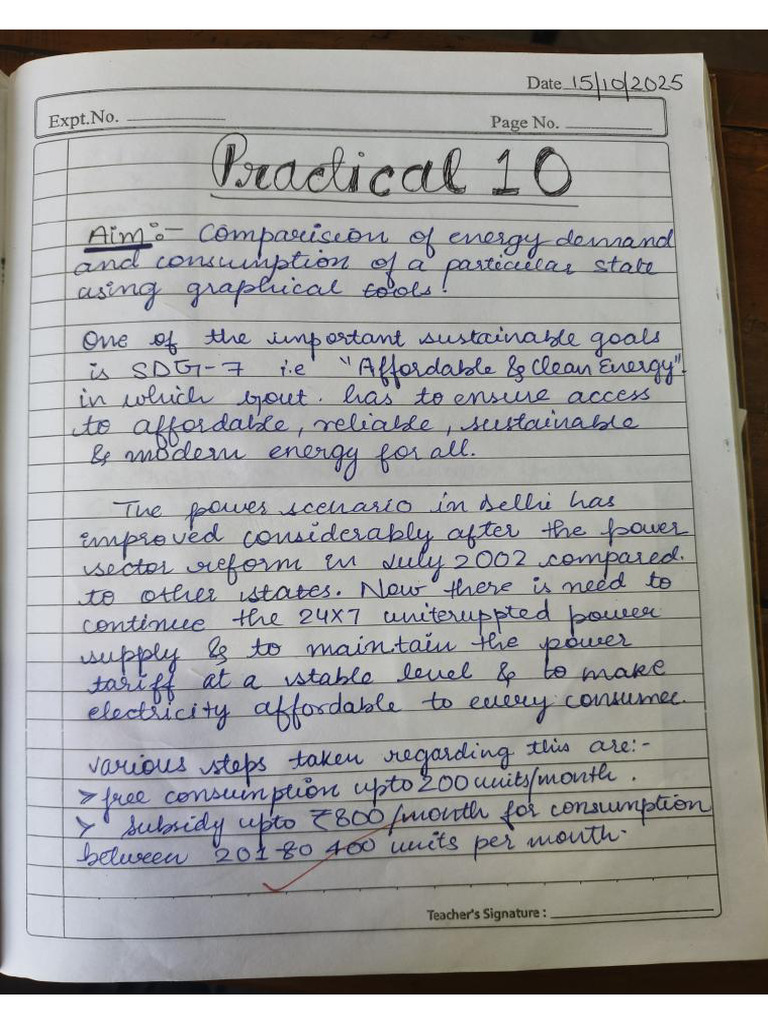 Date 15/10/2025
Expt.No.
Page No.
Practical 10
Aim:- Comparision of energy demand
and consumption of a particular state
using graphical tools.
One of the important sustainable goals
is SDG-7 i.e "Affordable & Clean Energy".
in which govt. has to ensure access
to affordable, reliable, sustainable
& modern energy for all.
The power scenario in Delhi has
improved considerably after the power
sector reform in July 2002 compared.
to other states. Now there is need to
continue the 24X7 uniteruppted power
supply & to maintain the power
tariff at a stable level & to make
electricity affordable to every consumer.
Various steps taken regarding this are:-
> free consumption upto 200 units/month.
> Subsidy upto ₹800/month for consumption
between 201 & 400 units per month.
Teacher's Signature :